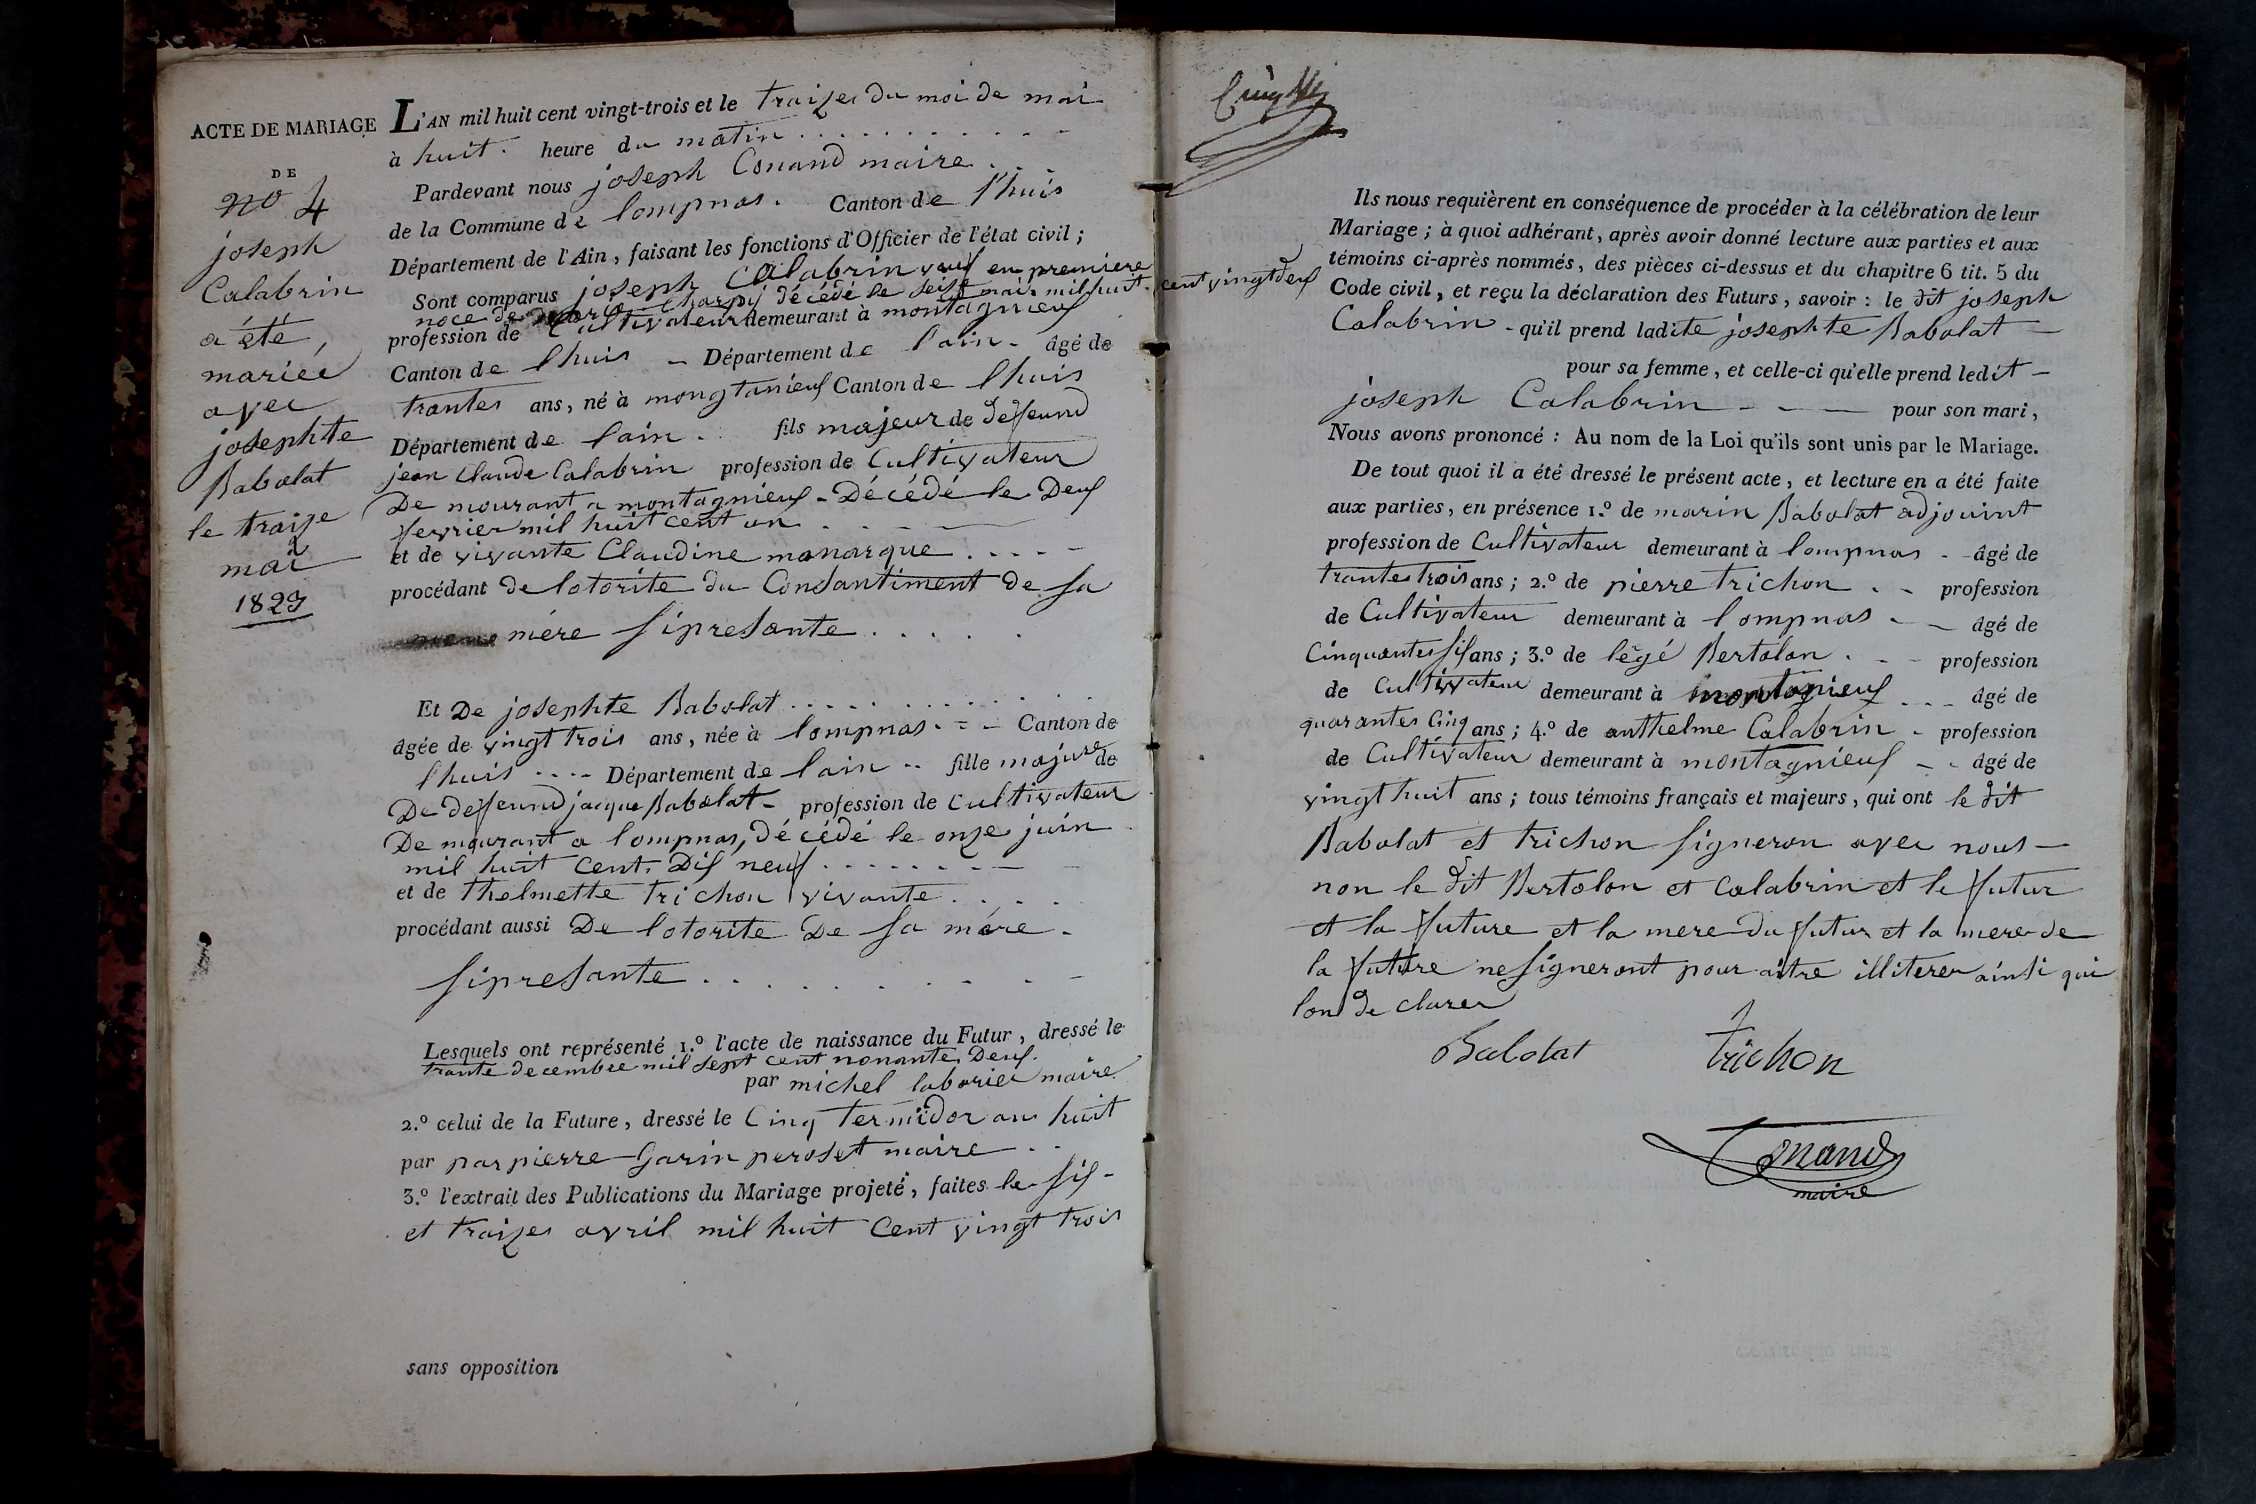 ACTE DE MARIAGE
DE
no 4
joseph
Calabrin
a été
mariéé
avec
josephte
Babolat
le traize
mai
1823
L'AN mil huit cent vingt-trois et le traizes du moi de mai
à huit. heure du matin
Pardevant nous joseph Conand maire
de la Commune de lompnas. Canton de l'huis
Département de l'Ain, faisant les fonctions d'Officier de l'état civil;
Sont comparus joseph Calabrin veuf en premiere
noce de marie décédé le mai mil huit cent vingt deus
profession de Cultivateur demeurant à montagnieus
Canton de lhuis - Département de lain - âgé de
trantes ans, né à mongtanieus Canton de lhuis
Département de lain. fils majeur de deffeund
jean Claude Calabrin profession de Cultivateur
De mourant a montagnieus - Décédé le Deus
fevrier mil huit cent un
et de vivante Claudine manarque
procédant de lotorite du Consantiment de sa
mére sipresante
Et De josephte Babolat
âgée de vingt trois ans, née à lompnas - - - Canton de
lhuis .... Département de lain .. fille majure de
De deffeund jacque Babolat - profession de Cultivateur
De mourant a lompnas, décédé le onze juin
mil huit cent Dis neuf
et de thelmette trichon vivante
procédant aussi De lotorite De sa mére -
sipresante
Lesquels ont représenté 1.º l'acte de naissance du Futur, dressé le
trante decembre mil sept cent nonantes Deus.
par michel laborier maire
2.º celui de la Future, dressé le Cinq termidor an huit
par par pierre Garin peroset maire
3.º l'extrait des Publications du Mariage projeté, faites le sis -
et traizes avril mil huit Cent vingt trois
sans opposition
Ils nous requièrent en conséquence de procéder à la célébration de leur
Mariage; à quoi adhérant, après avoir donné lecture aux parties et aux
témoins ci-après nommés, des pièces ci-dessus et du chapitre 6 tit. 5 du
Code civil, et reçu la déclaration des Futurs, savoir: le dit joseph
Calabrin - qu'il prend ladite josephte Babolat -
pour sa femme, et celle-ci qu'elle prend ledit -
joseph Calabrin - - - pour son mari,
Nous avons prononcé: Au nom de la Loi qu'ils sont unis par le Mariage.
De tout quoi il a été dressé le présent acte, et lecture en a été faite
aux parties, en présence 1.º de marin Babolat adjouint
profession de Cultivateur demeurant à lompnas - - âgé de
trantes trois ans; 2.º de pierre trichon . - profession
de Cultivateur demeurant à lompnas - - âgé de
Cinquantes sis ans; 3.º de légé Bertolon . - - profession
de Cultivateur demeurant à montagnieus . - - âgé de
quarantes Cinq ans; 4.º de anthelme Calabrin - profession
de Cultivateur demeurant à montagnieus - - âgé de
vingt huit ans; tous témoins français et majeurs, qui ont le dit
Babolat et trichon signeron avec nous -
non le dit Bertolon et Calabrin et le futur
et la future et la mere du futur et la mere de
la future ne signeront pour aitre illiterer ainsi qui
lon de clarer
Babolat trichon
Conand
maire